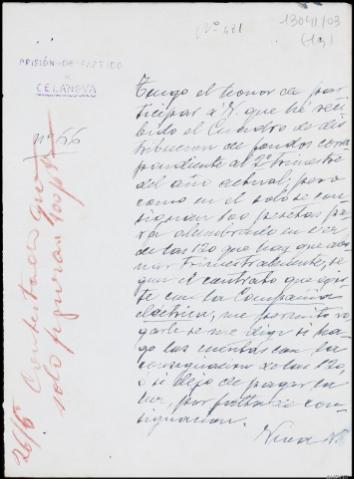 Nº 481
13041/03
(19)
PRISIÓN DE PARTIDO
CELANOVA
nº 66
Tengo el honor de par
ticipar á V. que hé reci
bido el Cuadro de dis
tribucion de fondos corres
pondiente al 2º trimestre
del año actual; pero
como en el solo se con
signan 100 pesetas pa
ra alumbrado en vez
de las 120 que hay que abo
nar trimestralmente, se
gun el contrato que exis
te con la Compañia
eléctrica, me permito ro
garle se me diga si ha
go las cuentas con la
consignacion de las 120,
ó si dejo de pagar la
luz, por falta de con
signacion.
26/6 Contestado que
solo figuran 100 pts